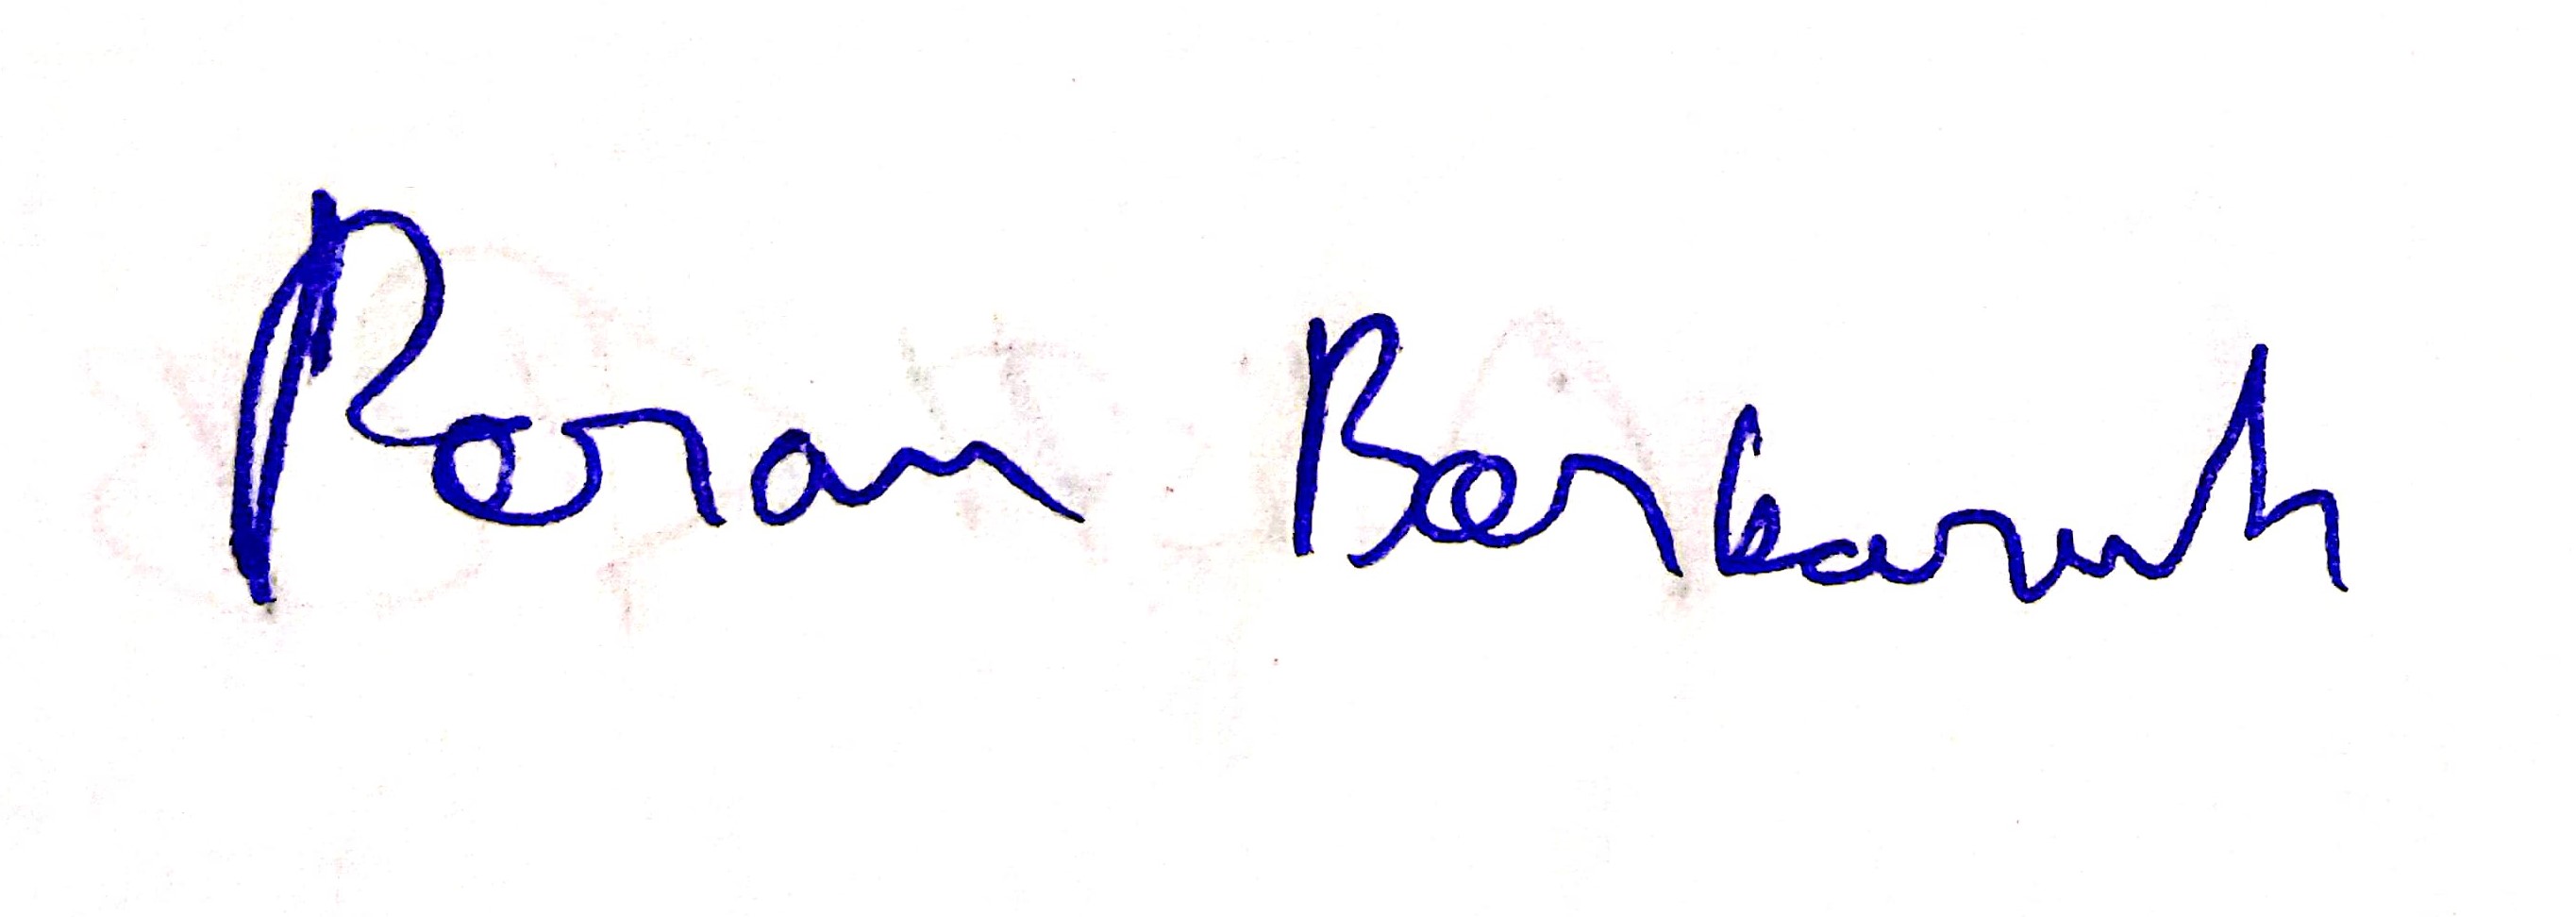 Poran Borkaruh